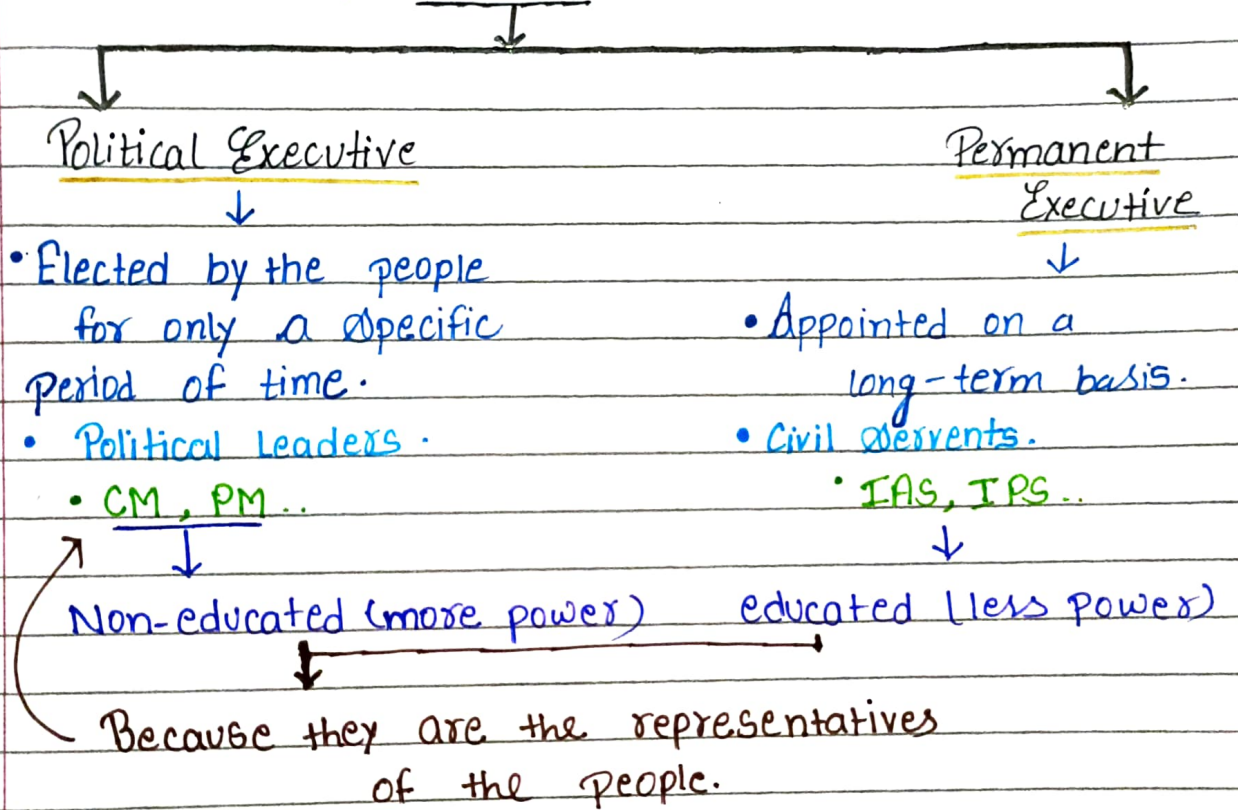 Political Executive
• Elected by the people
for only a specific
period of time.
• Political Leaders.
• CM, PM..
Non-educated (more power)
Permanent
Executive
• Appointed on a
long-term basis.
• Civil Servents.
• IAS, IPS..
educated (less power)
Because they are the representatives
of the people.